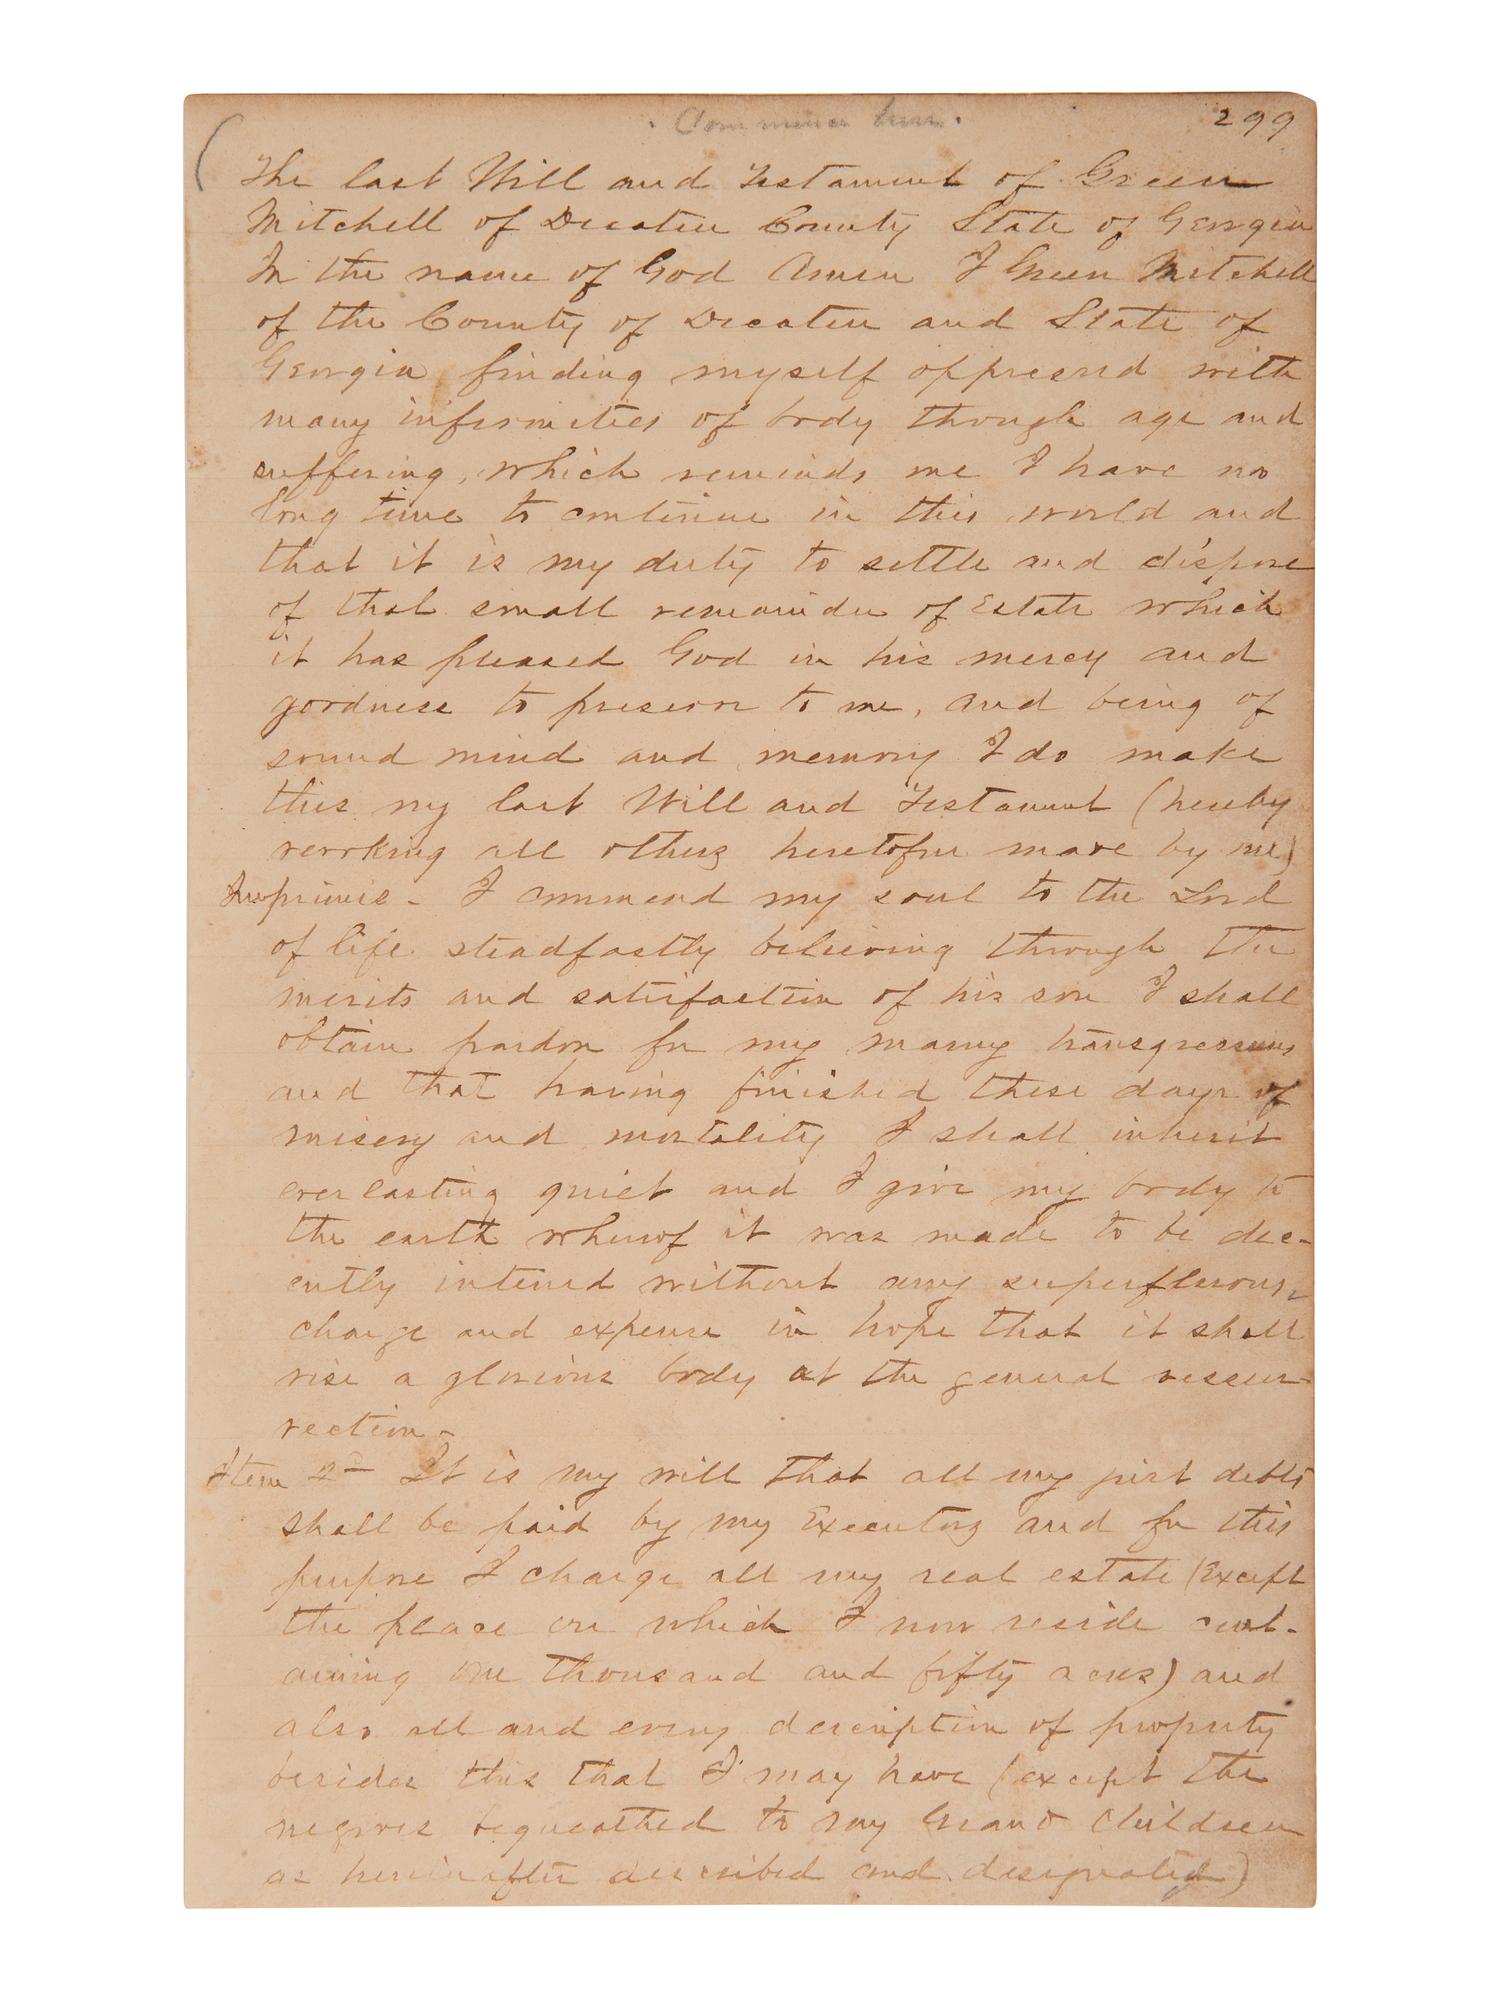 . Commence here .
299
The last Will and Testament of Green
Mitchell of Decatur County State of Georgia
In the name of God Amen I Green Mitchell
of the County of Decatur and State of
Georgia finding myself oppressed with
many infirmities of body though age and
suffering, which reminds me I have no
long time to continue in this world and
that it is my duty to settle and dispose
of that small remainder of Estate which
it has pleased God in his mercy and
goodness to preserve to me, and being of
sound mind and memory I do make
this my last Will and Testament (hereby
revoking all others heretofore made by me)
Imprimis - I commend my soul to the Lord
of life steadfastly believing through the
merits and satisfaction of his son I shall
obtain pardon for my many transgressions
and that having finished these days of
misery and mortality I shall inherit
everlasting quiet and I give my body to
the earth whereof it was made to be dec-
ently intered without any superfluous
charge and expense in hope that it shall
rise a glorious body at the general ressur-
rection -
Item 2d It is my will that all my just debts
shall be paid by my Executors and for this
purpose I charge all my real estate (Except
the place on which I now reside cont-
aining one thousand and fifty acres) and
also all and every description of property
besides this that I may have (except the
negroes bequeathed to my Grand Children
as hereinafter described and designated)